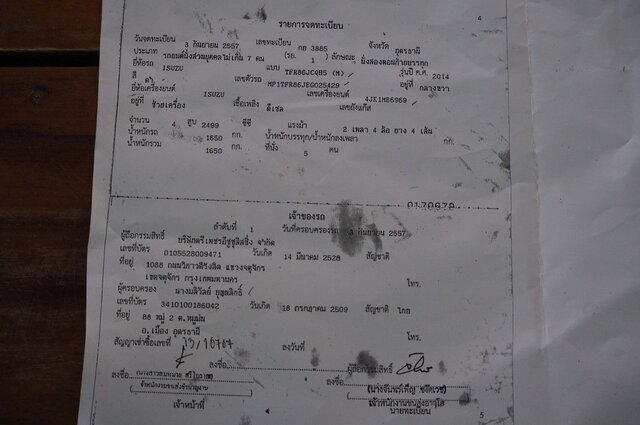 4
รายการจดทะเบียน
วันจดทะเบียน 3 กันยายน 2557 เลขทะเบียน กย 3885 จังหวัด อุดรธานี
ประเภท รถยนต์นั่งส่วนบุคคลไม่เกิน 7 คน (รย. 1) ลักษณะ นั่งสองตอนท้ายบรรทุก
ยี่ห้อรถ ISUZU แบบ TFR86JCQH5 (M) รุ่นปี ค.ศ. 2014
สี ดำ เลขตัวรถ MP1TFR86JEG025429 อยู่ที่ กลางขวา
ยี่ห้อเครื่องยนต์ ISUZU เลขเครื่องยนต์ 4JK1ME6969
อยู่ที่ ซ้ายเครื่อง เชื้อเพลิง ดีเซล เลขถังแก๊ส
จำนวน 4 สูบ 2499 ซีซี แรงม้า 2 เพลา 4 ล้อ ยาง 4 เส้น
น้ำหนักรถ 1650 กก. น้ำหนักบรรทุก/น้ำหนักลงเพลา กก.
น้ำหนักรวม 1650 กก. ที่นั่ง 5 คน
0170679
เจ้าของรถ
ลำดับที่ 1 วันที่ครอบครองรถ 3 กันยายน 2557
ผู้ถือกรรมสิทธิ์ บริษัทตรีเพชรอีซูซุลิสซิ่ง จำกัด
เลขที่บัตร 0105528009471 วันเกิด 14 มีนาคม 2528 สัญชาติ
ที่อยู่ 1088 ถนนวิภาวดีรังสิต แขวงจตุจักร
เขตจตุจักร กรุงเทพมหานคร โทร.
ผู้ครอบครอง
เลขที่บัตร 3410100186042 วันเกิด 18 กรกฎาคม 2509 สัญชาติ ไทย
ที่อยู่ 88 หมู่ 2 ต.หมูม่น
อ.เมือง อุดรธานี โทร.
สัญญาเช่าซื้อเลขที่ ลงวันที่
ลงชื่อ ผู้ถือกรรมสิทธิ์
ลงชื่อ ลงชื่อ
เจ้าหน้าที่ นายทะเบียน
5